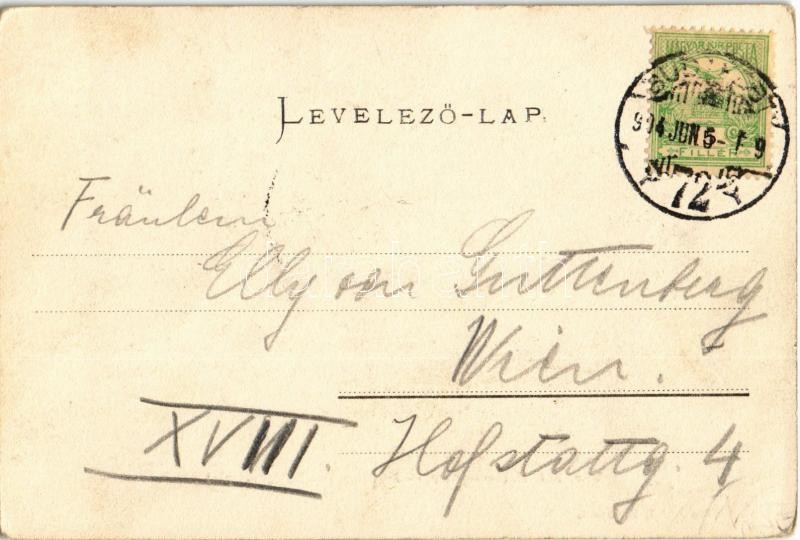 MAGYAR KIR. POSTA
FILLÉR
904 JUN 5 - F 9
72
LEVELEZŐ-LAP.
Fräulein
Elly von Guttenberg
Wien.
XVIII. Hofstattg. 4